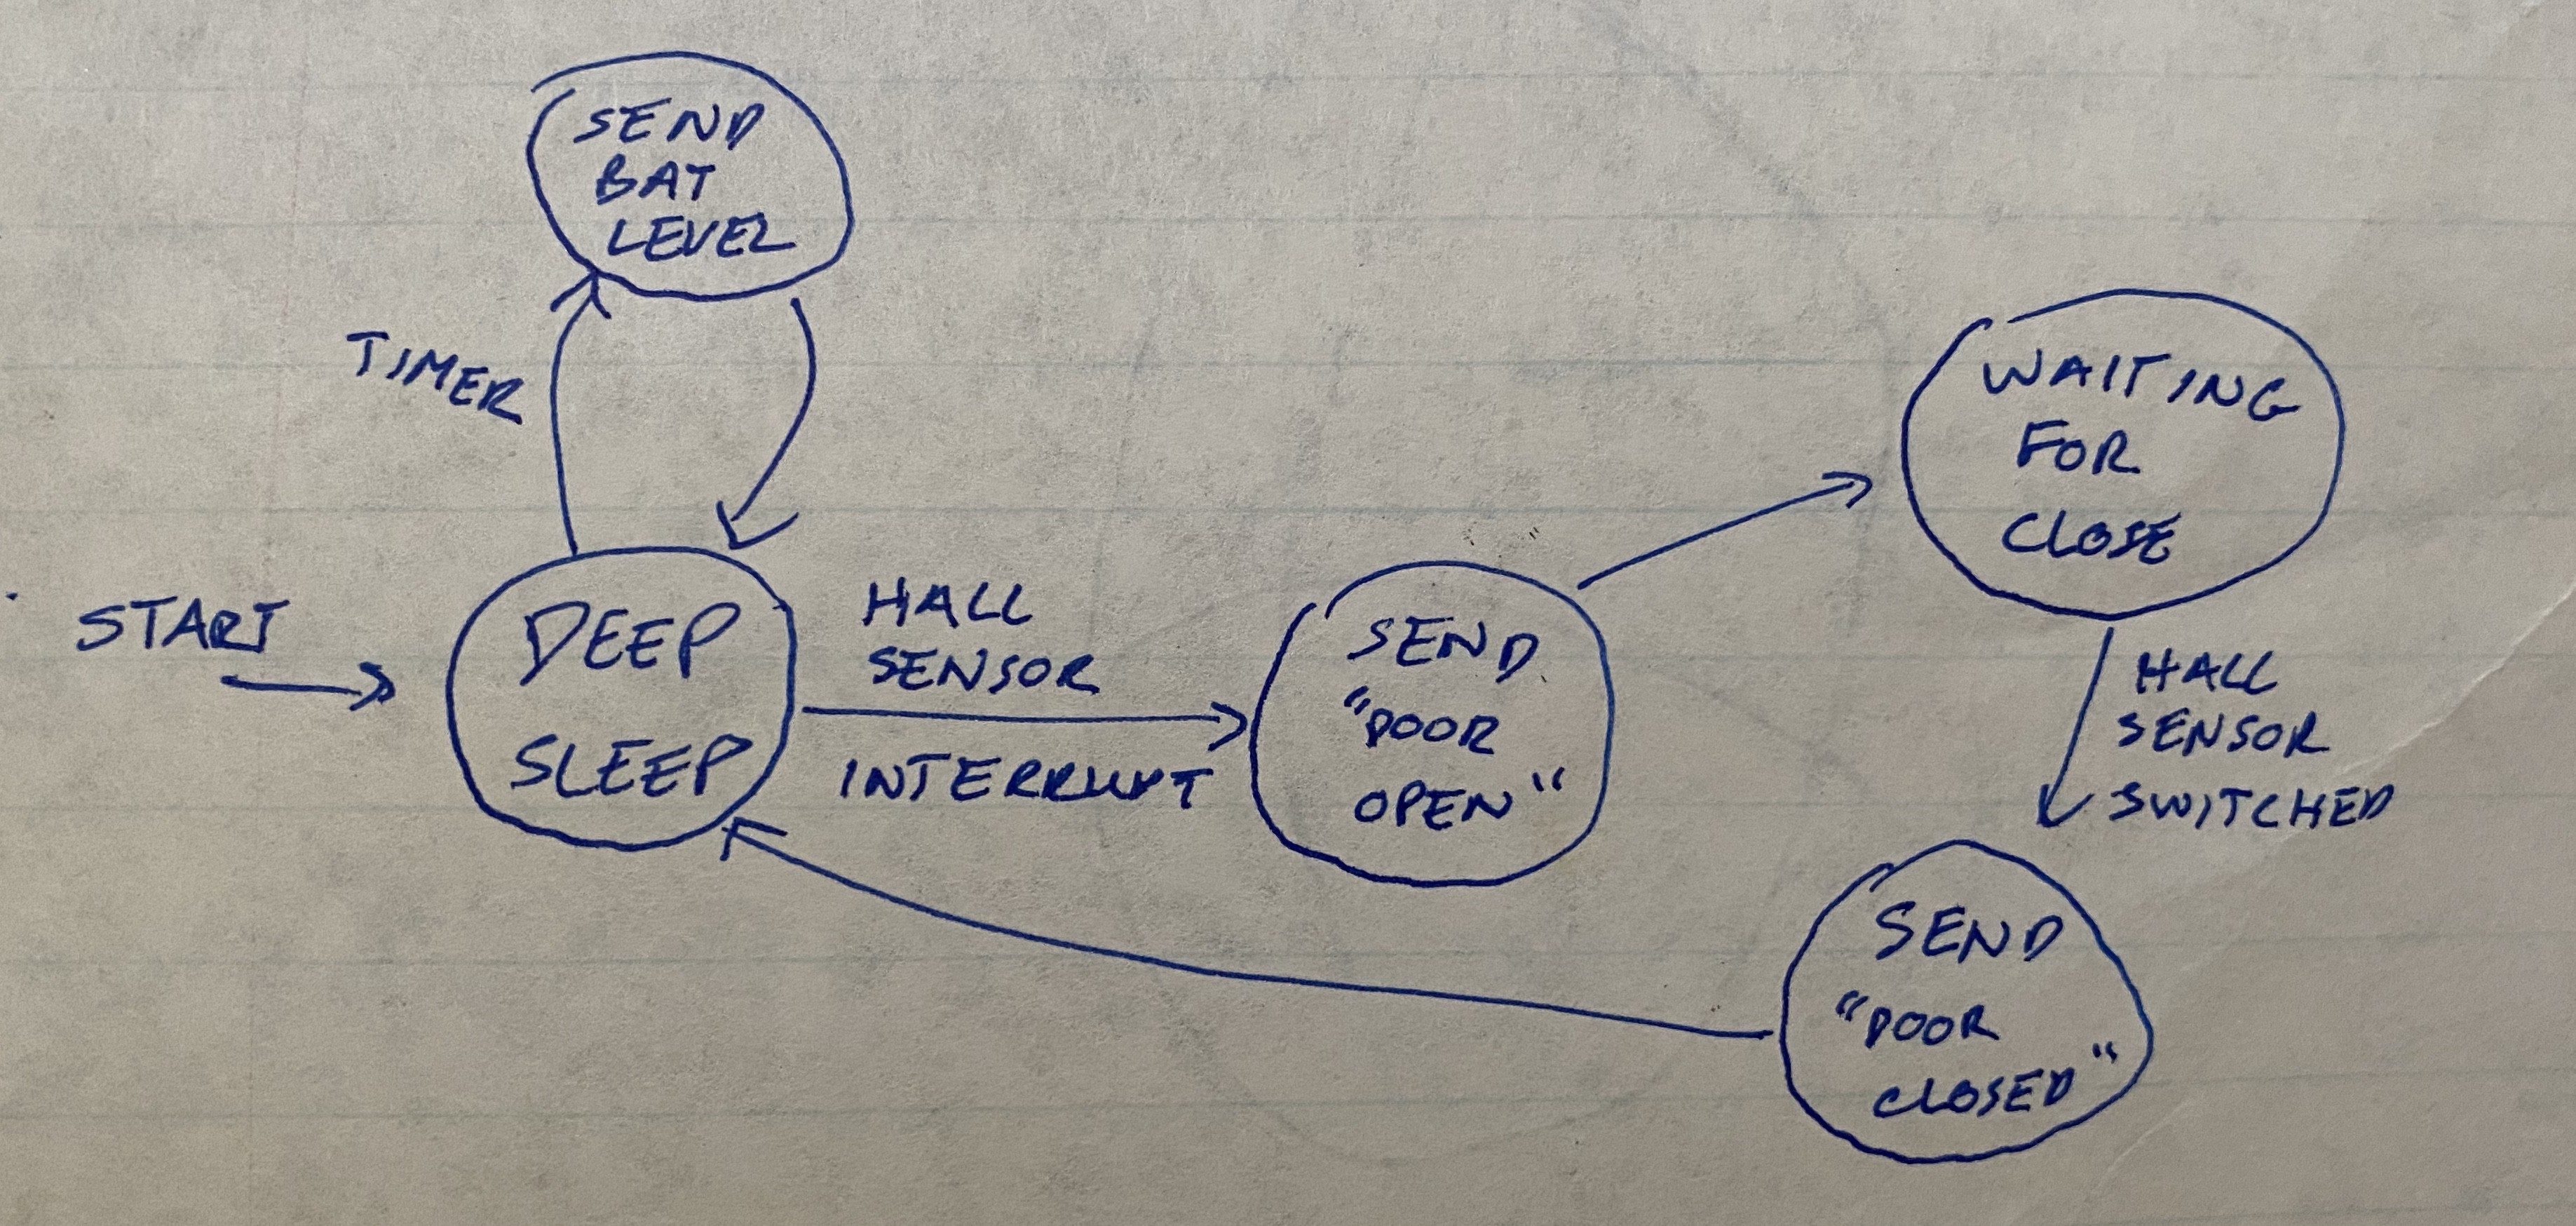 SEND
BAT
LEVEL
TIMER
START
DEEP
SLEEP
HALL
SENSOR
INTERRUPT
SEND
"DOOR
OPEN"
WAITING
FOR
CLOSE
HALL
SENSOR
SWITCHED
SEND
"DOOR
CLOSED"